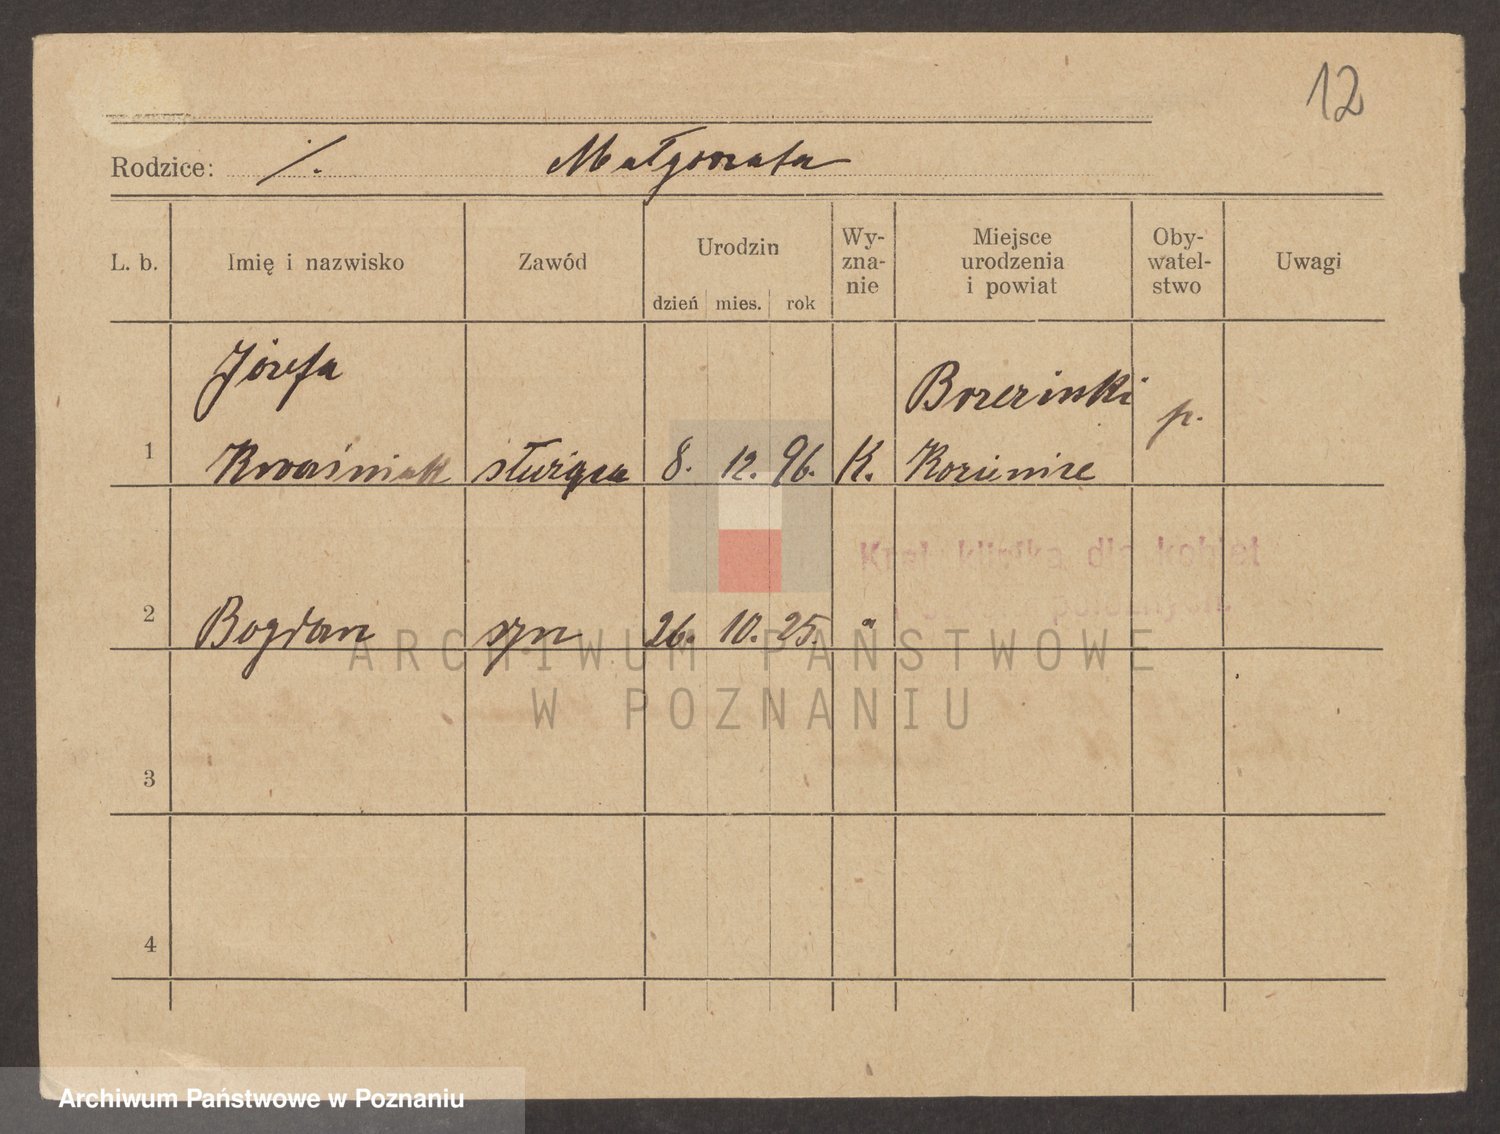 12
Rodzice: ./. Małgorzata
L. b. Imię i nazwisko Zawód Urodzin dzień mies. rok Wy-zna-nie Miejsce urodzenia i powiat Oby-watel-stwo Uwagi
Józefa
1 Kwaśniak służąca 8. 12. 96. K. Kozienice p.
Kral. klinika dla kobiet
położnych.
2 Bogdan syn 26. 10. 25. "
ARCHIWUM PAŃSTWOWE
W POZNANIU
3
4
Archiwum Państwowe w Poznaniu